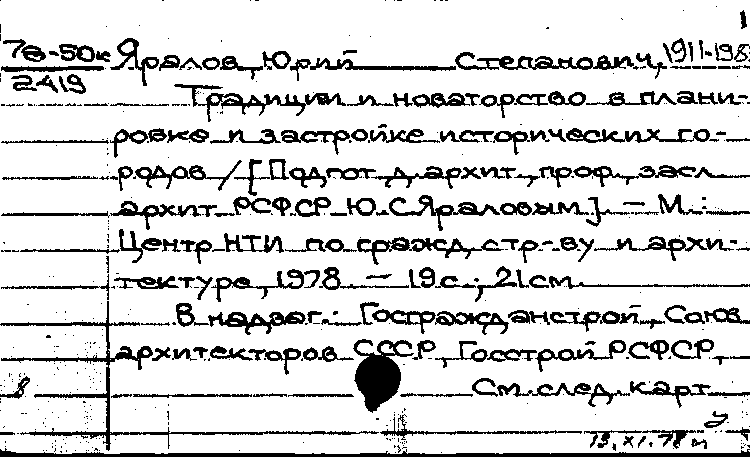 1
78-50к
2419
Яралов, Юрий Степанович, 1911-198
Традиции и новаторство в плани-
ровке и застройке исторических го-
родов / [Подгот. д. архит., проф., засл.
архит. РСФСР Ю.С. Яраловым]. — М.:
Центр НТИ по гражд. стр-ву и архи-
тектуре, 1978. — 19 с.; 21 см.
В надзаг.: Госгражданстрой, Союз
архитекторов СССР, Госстрой РСФСР,
См. след. карт.
13.XI.78